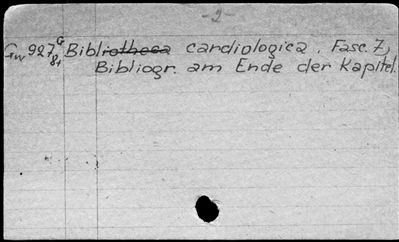 -2-
Gw 927 G/81 Bibliotheca cardiologica. Fasc. 7)
Bibliogr. am Ende der Kapitel.